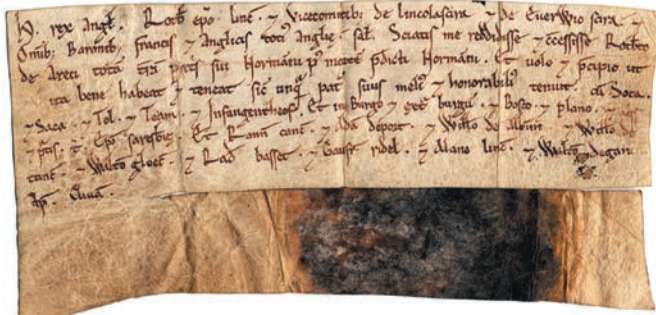 H. rex angl̄. Rotb̄ ep̄o linc̄. ⁊ vicecomitib; de lincolascira ⁊ de Everwic scira ⁊
Omīb; Baronib; francis ⁊ Anglicis toti᷒ anglie sal̄. Sciatis me reddidisse ⁊ c̄cessisse Rotb̄to
de Areci totā t̄rā pat̄s sui Normāni p᷒ mortē p̄dicti Normāni. Et volo ⁊ p̄cipio ut
ita bene habeat ⁊ teneat sic̄ unq̄ pat̄ suus meli᷒ ⁊ honorabili᷒ tenuit. cū Soca.
⁊ Saca. ⁊ Tol. ⁊ Team. ⁊ Infangentheof. Et in Burgo ⁊ ext̄ burgū. ⁊ Bosco ⁊ plano. ⁊
⁊ p̄tis. T̄. Ep̄o saresb̄ie. Et Rann̄ canc̄. ⁊ Adā de port. ⁊ Witt̄o de Albini. ⁊ Witt̄o de
tanc̄. ⁊ Walt̄o gloec̄. ⁊ Rad̄ basset. ⁊ Gaufr̄ ridel. ⁊ Alano linc̄. ⁊ Walt̄o degan
Ap̄. Clivā.